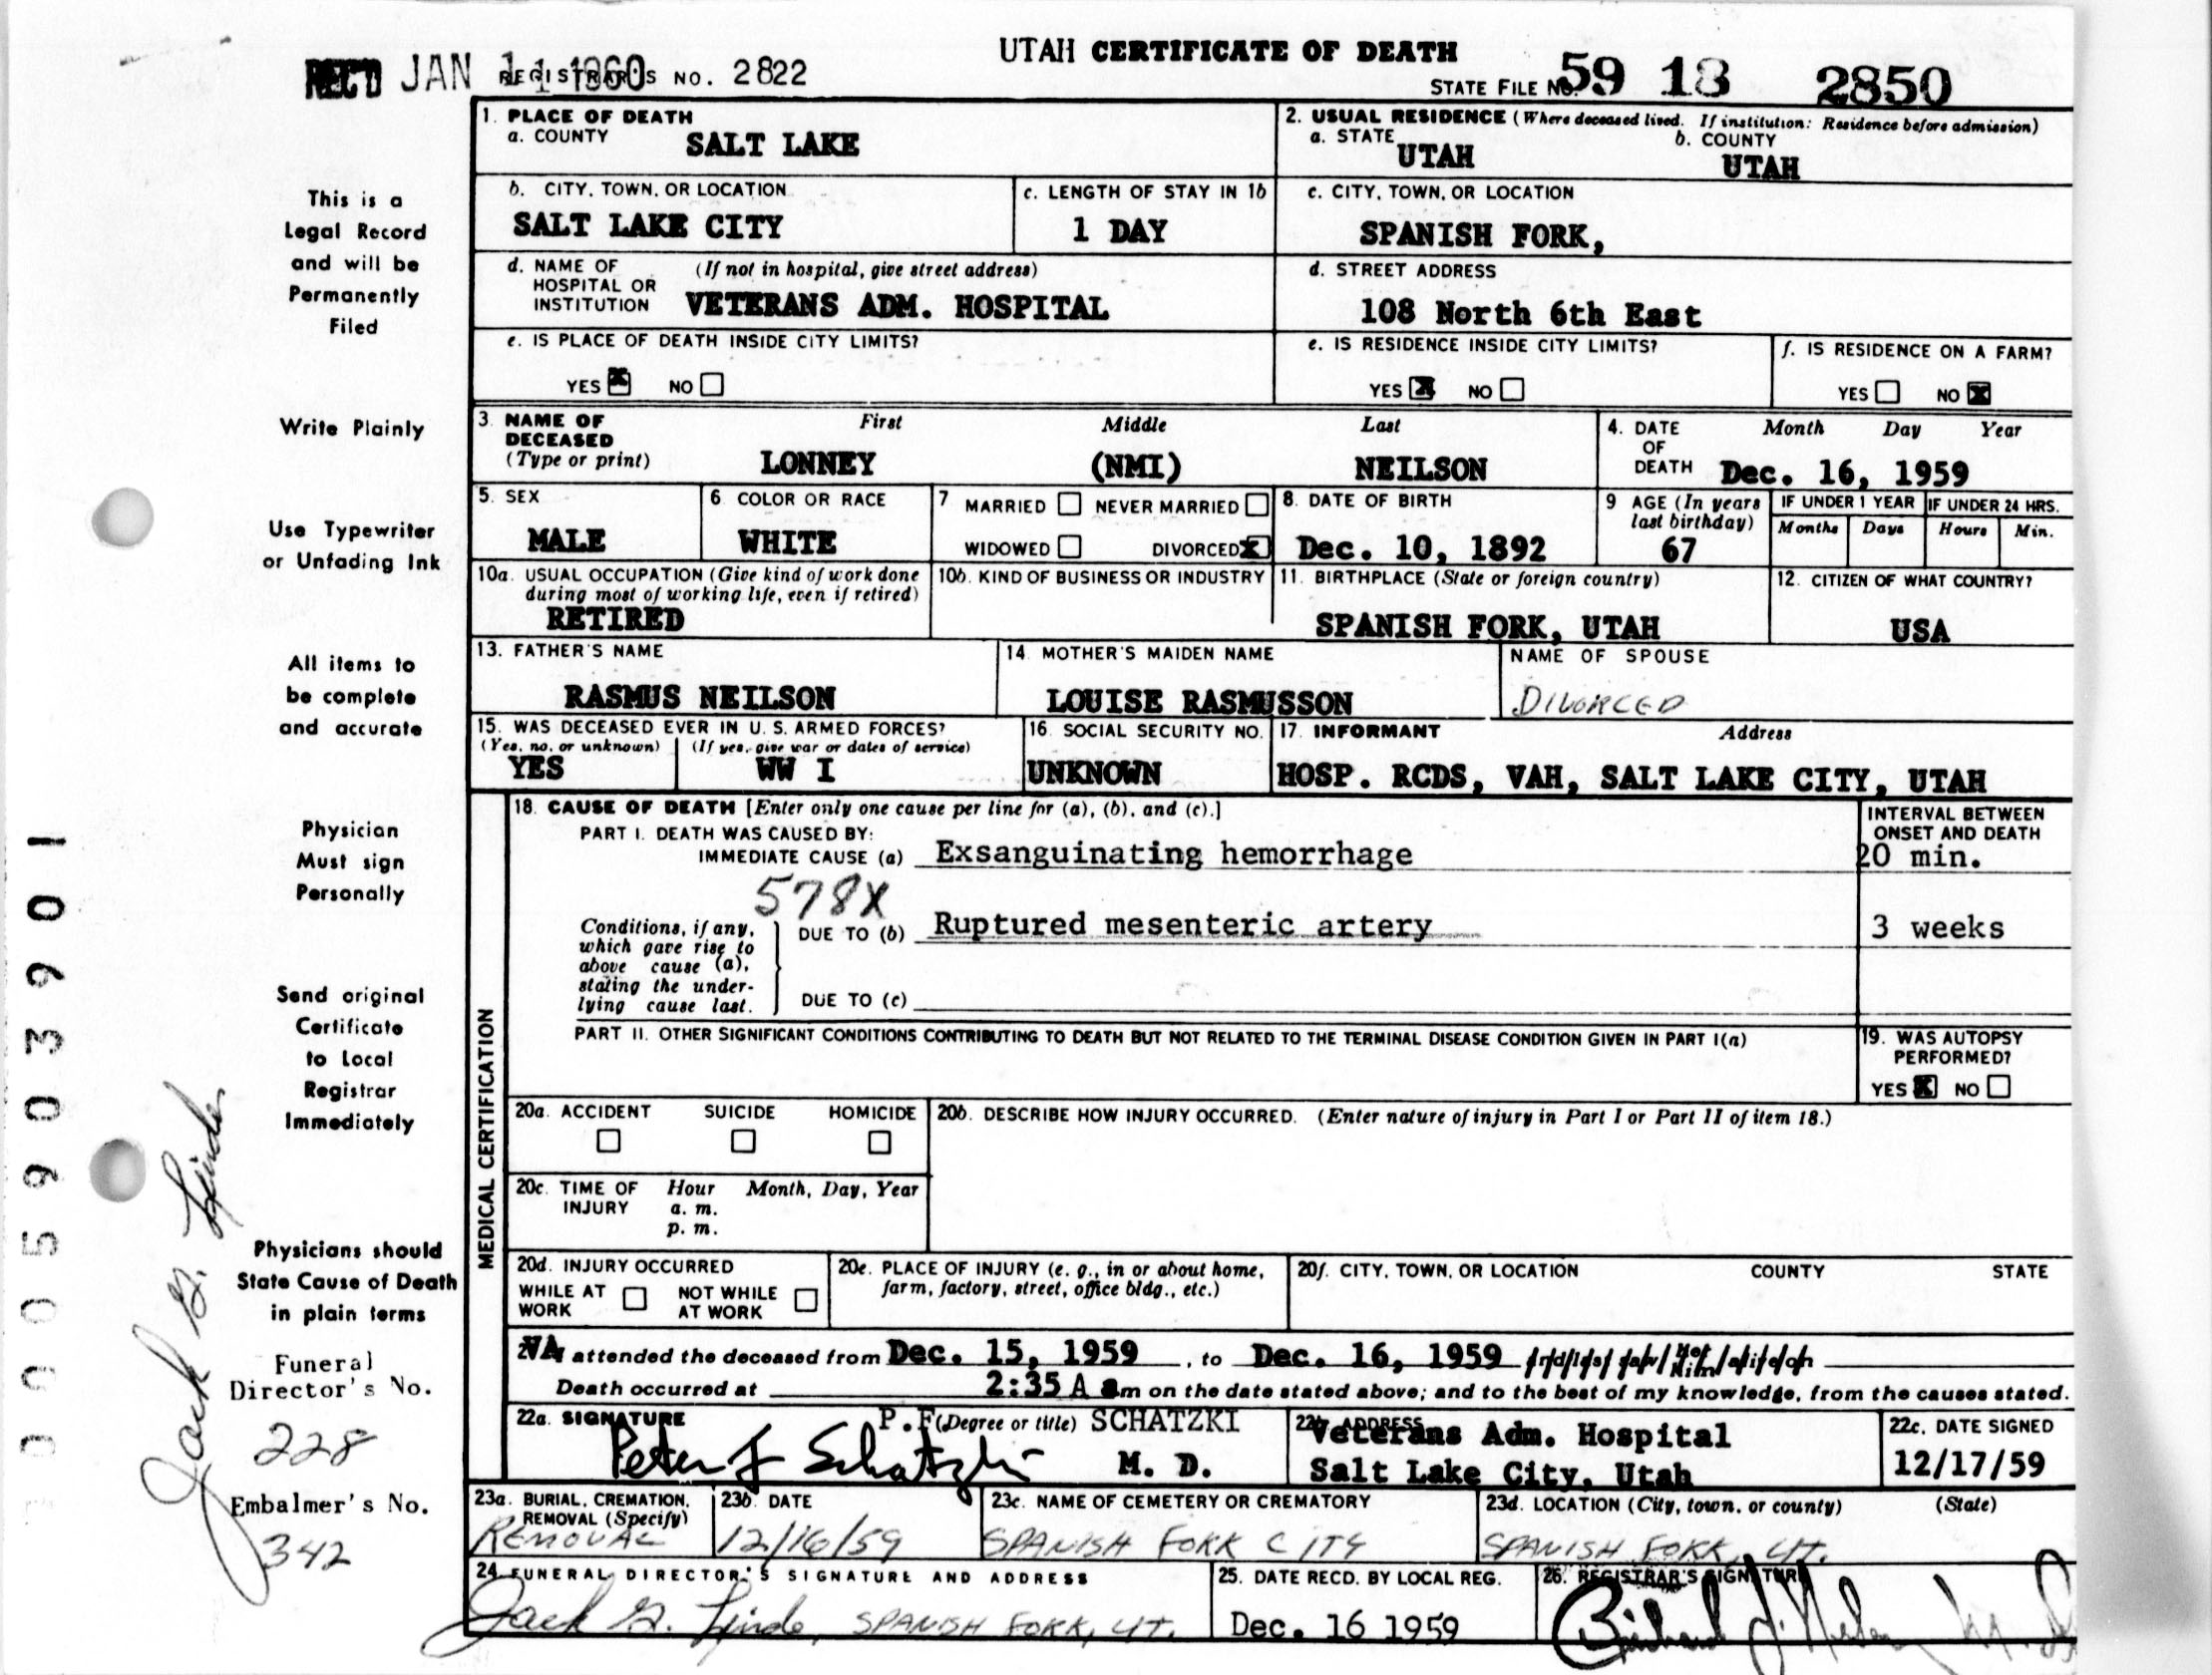 UTAH CERTIFICATE OF DEATH
REC'D JAN 11 1960 REGISTRAR'S NO. 2822
STATE FILE NO. 59 18 2850
1. PLACE OF DEATH
a. COUNTY SALT LAKE
2. USUAL RESIDENCE (Where deceased lived. If institution: Residence before admission)
a. STATE UTAH b. COUNTY UTAH
b. CITY, TOWN, OR LOCATION SALT LAKE CITY
c. LENGTH OF STAY IN 1b 1 DAY
c. CITY, TOWN, OR LOCATION SPANISH FORK,
d. NAME OF HOSPITAL OR INSTITUTION (If not in hospital, give street address) VETERANS ADM. HOSPITAL
d. STREET ADDRESS 108 North 6th East
e. IS PLACE OF DEATH INSIDE CITY LIMITS? YES X NO
e. IS RESIDENCE INSIDE CITY LIMITS? YES X NO
f. IS RESIDENCE ON A FARM? YES NO X
3. NAME OF DECEASED (Type or print) First Middle Last
LONNEY (NMI) NEILSON
4. DATE OF DEATH Month Day Year Dec. 16, 1959
5. SEX MALE
6. COLOR OR RACE WHITE
7 MARRIED NEVER MARRIED WIDOWED DIVORCED X
8. DATE OF BIRTH Dec. 10, 1892
9 AGE (In years last birthday) 67
IF UNDER 1 YEAR Months Days
IF UNDER 24 HRS. Hours Min.
10a. USUAL OCCUPATION (Give kind of work done during most of working life, even if retired) RETIRED
10b. KIND OF BUSINESS OR INDUSTRY
11. BIRTHPLACE (State or foreign country) SPANISH FORK, UTAH
12. CITIZEN OF WHAT COUNTRY? USA
13. FATHER'S NAME RASMUS NEILSON
14. MOTHER'S MAIDEN NAME LOUISE RASMUSSON
NAME OF SPOUSE DIVORCED
15. WAS DECEASED EVER IN U. S. ARMED FORCES?
(Yes, no, or unknown) YES (If yes, give war or dates of service) WW I
16. SOCIAL SECURITY NO. UNKNOWN
17. INFORMANT Address
HOSP. RCDS, VAH, SALT LAKE CITY, UTAH
MEDICAL CERTIFICATION
18. CAUSE OF DEATH [Enter only one cause per line for (a), (b), and (c).]
INTERVAL BETWEEN ONSET AND DEATH
PART I. DEATH WAS CAUSED BY:
IMMEDIATE CAUSE (a) Exsanguinating hemorrhage 20 min.
578X
Conditions, if any, which gave rise to above cause (a), stating the underlying cause last.
DUE TO (b) Ruptured mesenteric artery 3 weeks
DUE TO (c)
PART II. OTHER SIGNIFICANT CONDITIONS CONTRIBUTING TO DEATH BUT NOT RELATED TO THE TERMINAL DISEASE CONDITION GIVEN IN PART I(a)
19. WAS AUTOPSY PERFORMED? YES X NO
20a. ACCIDENT SUICIDE HOMICIDE
20b. DESCRIBE HOW INJURY OCCURRED. (Enter nature of injury in Part I or Part II of item 18.)
20c. TIME OF INJURY Hour Month, Day, Year
a. m.
p. m.
20d. INJURY OCCURRED
WHILE AT WORK NOT WHILE AT WORK
20e. PLACE OF INJURY (e. g., in or about home, farm, factory, street, office bldg., etc.)
20f. CITY, TOWN, OR LOCATION COUNTY STATE
VA attended the deceased from Dec. 15, 1959, to Dec. 16, 1959
Death occurred at 2:35 A m on the date stated above; and to the best of my knowledge, from the causes stated.
22a. SIGNATURE P.F (Degree or title) SCHATZKI
Peter F Schatzki M. D.
22b. ADDRESS Veterans Adm. Hospital
Salt Lake City, Utah
22c. DATE SIGNED 12/17/59
23a. BURIAL, CREMATION, REMOVAL (Specify) REMOVAL
23b. DATE 12/16/59
23c. NAME OF CEMETERY OR CREMATORY SPANISH FORK CITY
23d. LOCATION (City, town, or county) (State) SPANISH FORK, UT.
24. FUNERAL DIRECTOR'S SIGNATURE AND ADDRESS
Jack G. Linde, SPANISH FORK, UT.
25. DATE RECD. BY LOCAL REG. Dec. 16 1959
26. REGISTRAR'S SIGNATURE
This is a
Legal Record
and will be
Permanently
Filed
Write Plainly
Use Typewriter
or Unfading Ink
All items to
be complete
and accurate
Physician
Must sign
Personally
Send original
Certificate
to Local
Registrar
Immediately
Physicians should
State Cause of Death
in plain terms
Funeral
Director's No.
228
Embalmer's No.
342
Jack G. Linde
0005903901